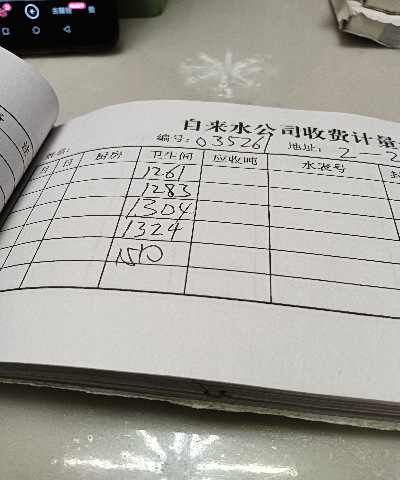 自来水公司收费计量
编号: 035261 地址: 2-2
姓名:
月 日 厨房 卫生间 应收吨 水表号
1261
1283
1304
1324